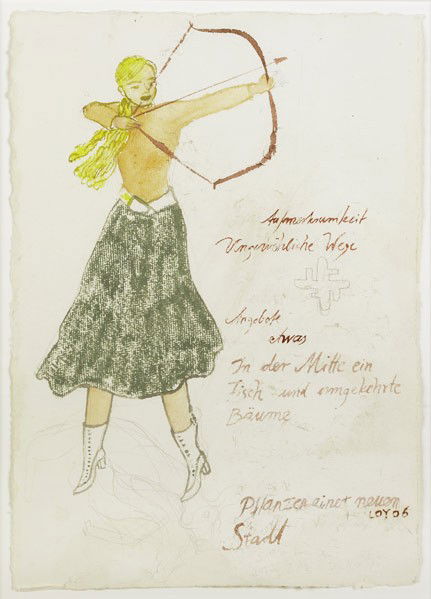 Aufmerksamkeit
Ungewöhnliche Wege
Angebote
etwas
In der Mitte ein
Tisch und umgekehrte
Bäume
Pflanzen einer neuen
LOY 06
Stadt